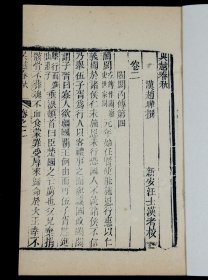 吳越春秋
卷二
漢 趙曄撰 新安汪士漢考校
闔閭內傳第四
闔閭元年始任賢使能施恩行惠以仁
義聞於諸侯仁未施恩未行恐國人不就諸侯不信
乃舉伍子胥為行人以客禮事之而與謀國政闔閭謂
子胥曰寡人欲彊國霸王何由而可伍子胥膝進
垂淚頓首曰臣楚國之亡虜也父兄棄捐
骸骨不葬魂不血食蒙罪受辱來歸命於大王幸不
吳越春秋